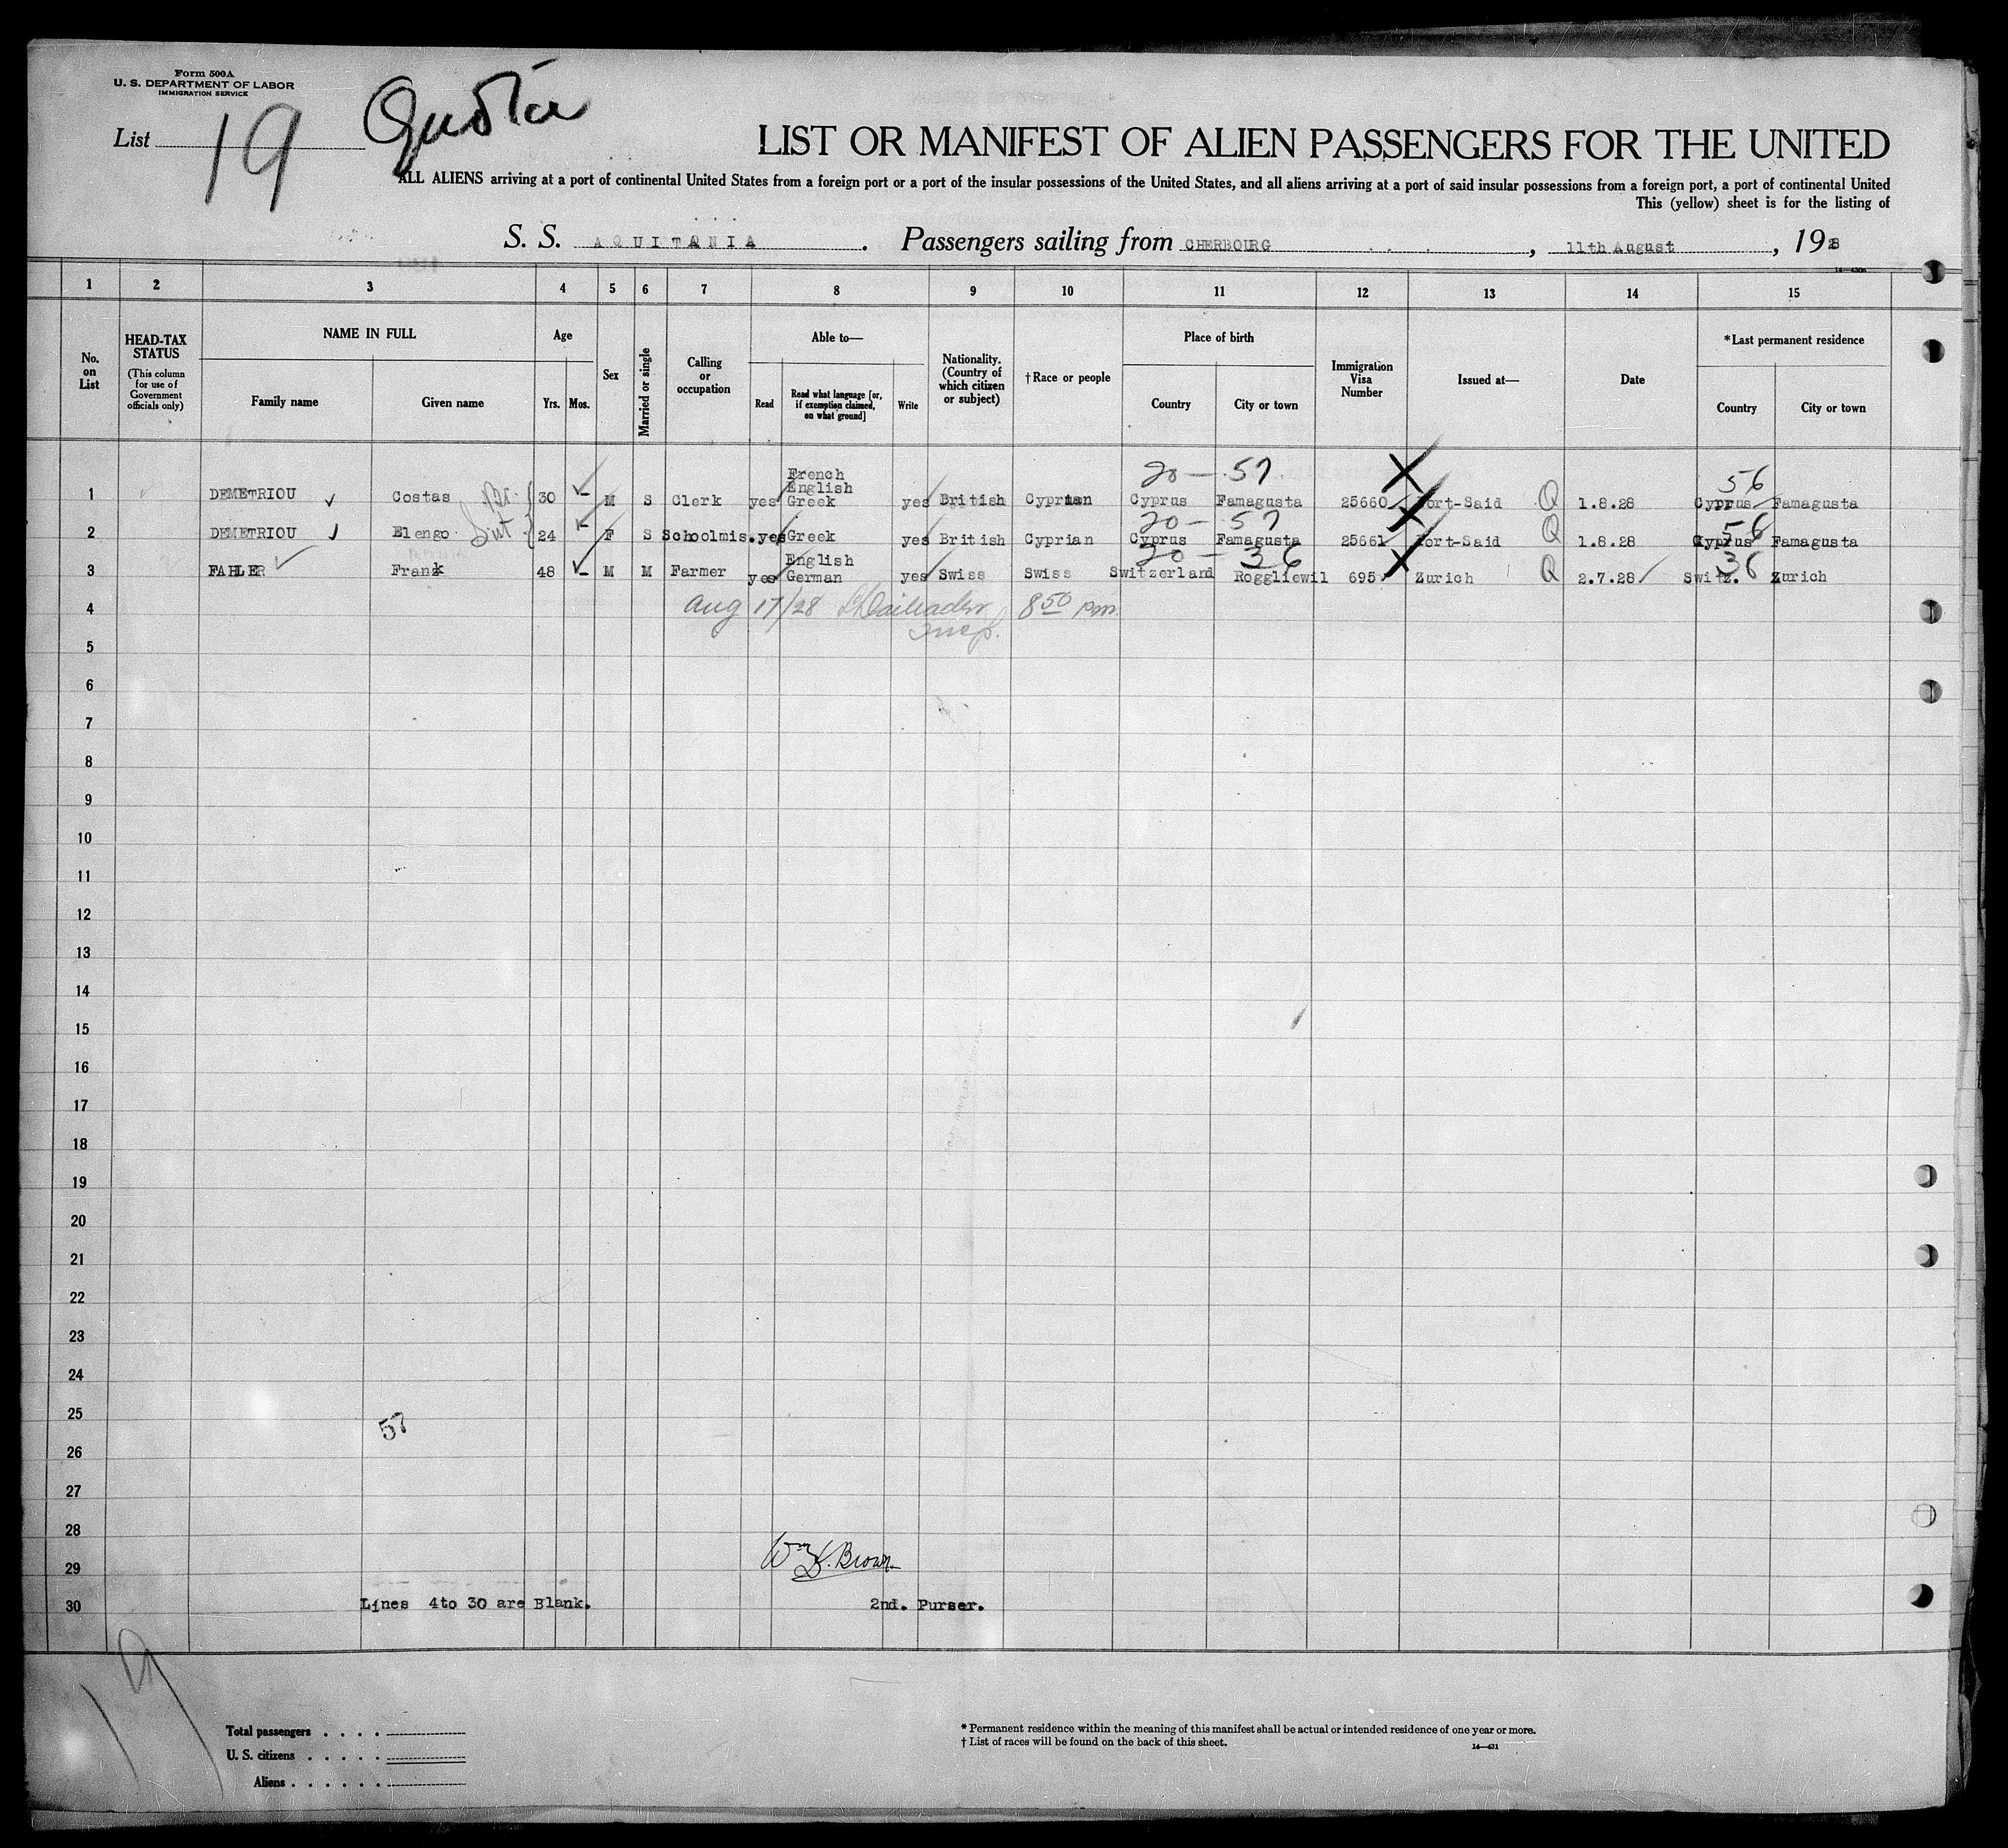 Form 500A
U. S. DEPARTMENT OF LABOR
IMMIGRATION SERVICE
List 19 Quota
LIST OR MANIFEST OF ALIEN PASSENGERS FOR THE UNITED
ALL ALIENS arriving at a port of continental United States from a foreign port or a port of the insular possessions of the United States, and all aliens arriving at a port of said insular possessions from a foreign port, a port of continental United
This (yellow) sheet is for the listing of
S. S. AQUITANIA . Passengers sailing from CHERBOURG , 11th August , 1928
1 2 3 4 5 6 7 8 9 10 11 12 13 14 15
No. on List
HEAD-TAX STATUS
(This column for use of Government officials only)
NAME IN FULL
Family name Given name
Age
Yrs. Mos.
Sex
Married or single
Calling or occupation
Able to—
Read
Read what language [or, if exemption claimed, on what ground]
Write
Nationality. (Country of which citizen or subject)
†Race or people
Place of birth
Country City or town
Immigration Visa Number
Issued at—
Date
*Last permanent residence
Country City or town
20 — 57 56
1 DEMETRIOU Costas 30 - M S Clerk yes French English Greek yes British Cyprian Cyprus Famagusta 25660 Port-Said Q 1.8.28 Cyprus Famagusta
20 — 57 56
2 DEMETRIOU Elengo 24 - F S Schoolmis. yes Greek yes British Cyprian Cyprus Famagusta 25661 Port-Said Q 1.8.28 Cyprus Famagusta
20 — 36 36
3 FAHLER Frank 48 - M M Farmer yes English German yes Swiss Swiss Switzerland Roggliewil 695 Zurich Q 2.7.28 Switz. Zurich
4 Aug 17/28 8 50 pm.
Insp.
5
6
7
8
9
10
11
12
13
14
15
16
17
18
19
20
21
22
23
24
25 57
26
27
28
29 Wm L. Brown
30 Lines 4to 30 are Blank. 2nd. Purser.
19
Total passengers . . . .
U. S. citizens . . . . .
Aliens . . . . . .
* Permanent residence within the meaning of this manifest shall be actual or intended residence of one year or more.
† List of races will be found on the back of this sheet.
14—431